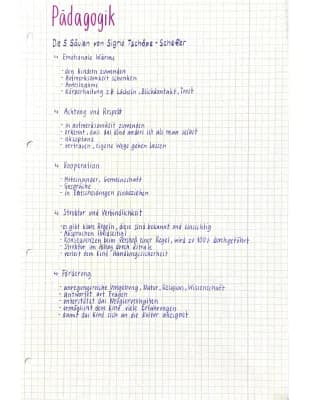 Pädagogik
Die 5 Säulen von Sigrid Tschöpe-Scheffler
↳ Emotionale Wärme
- den Kindern zuwenden
- Aufmerksamkeit schenken
- Anteilnahme
- Körperhaltung z.B. Lächeln, Blickkontakt, Trost
↳ Achtung und Respekt
- in aufmerksamkeit zuwenden
- erkennt, das das Kind anders ist als man selbst
- akzeptanz
- vertrauen, eigene Wege gehen lassen
↳ Kooperation
- Miteinander, Gemeinschaft
- Gespräche
- in Entscheidungen einbeziehen
↳ Struktur und Verbindlichkeit
- es gibt klare Regeln, diese sind bekannt und einsichtig
- Absprachen (beidseitig)
- Konsequenzen beim Verstoß einer Regel, wird zu 100% durchgeführt
- Struktur im Alltag durch Rituale
- verleit dem Kind Handlungssicherheit
↳ Förderung
- anregungsreiche Umgebung, Natur, Religion, Wissenschaft
- antwortet auf Fragen
- unterstützt das Neugierverhalten
- ermöglicht dem Kind viele Erfahrungen
- damit das Kind sich an die Kultur aneignet